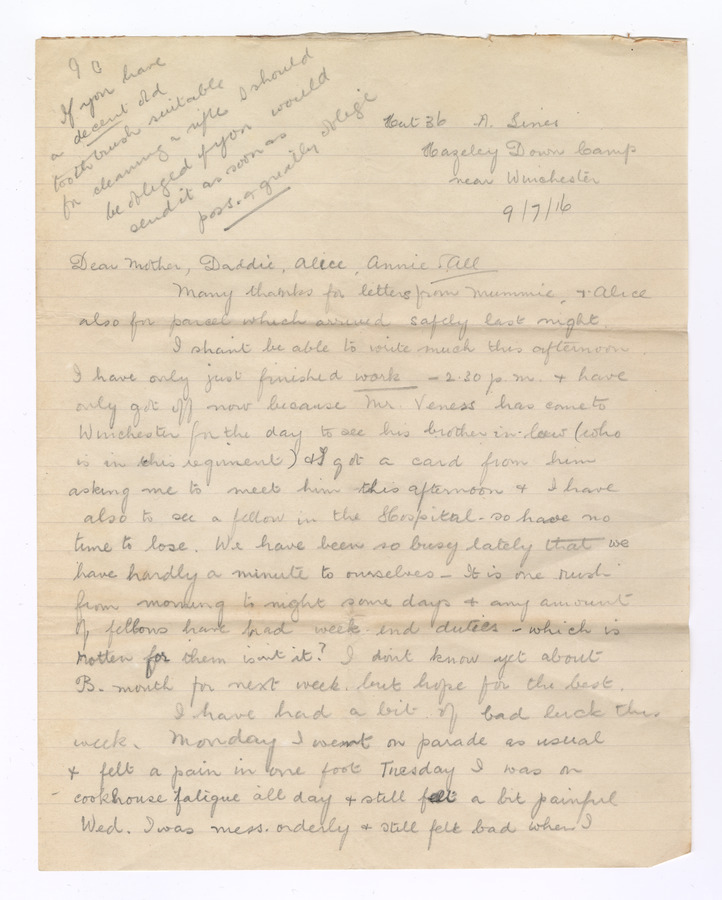 If you have
a decent old
toothbrush suitable
for cleaning a rifle I should
be obliged if you would
send it as soon as
poss. & greatly oblige
Hut 36 A. Lines
Hazeley Down Camp
near Winchester
9/7/16
Dear Mother, Daddie, Alice, Annie & All
Many thanks for letters from Mummie, & Alice
also for parcel which arrived safely last night.
I shan't be able to write much this afternoon
I have only just finished work - 2.30 p.m. & have
only got off now because Mr. Veness has come to
Winchester for the day to see his brother-in-law (who
is in this regiment) & I got a card from him
asking me to meet him this afternoon & I have
also to see a fellow in the Hospital - so have no
time to lose. We have been so busy lately that we
have hardly a minute to ourselves - It is one rush
from morning to night some days & any amount
of fellows have had week-end duties - which is
rotten for them isn't it? I don't know yet about
B. mouth for next week. but hope for the best.
I have had a bit of bad luck this
week. Monday I went on parade as usual
& felt a pain in one foot Tuesday I was on
cookhouse fatigue all day & still felt a bit painful
Wed. I was mess-orderly & still felt bad when I